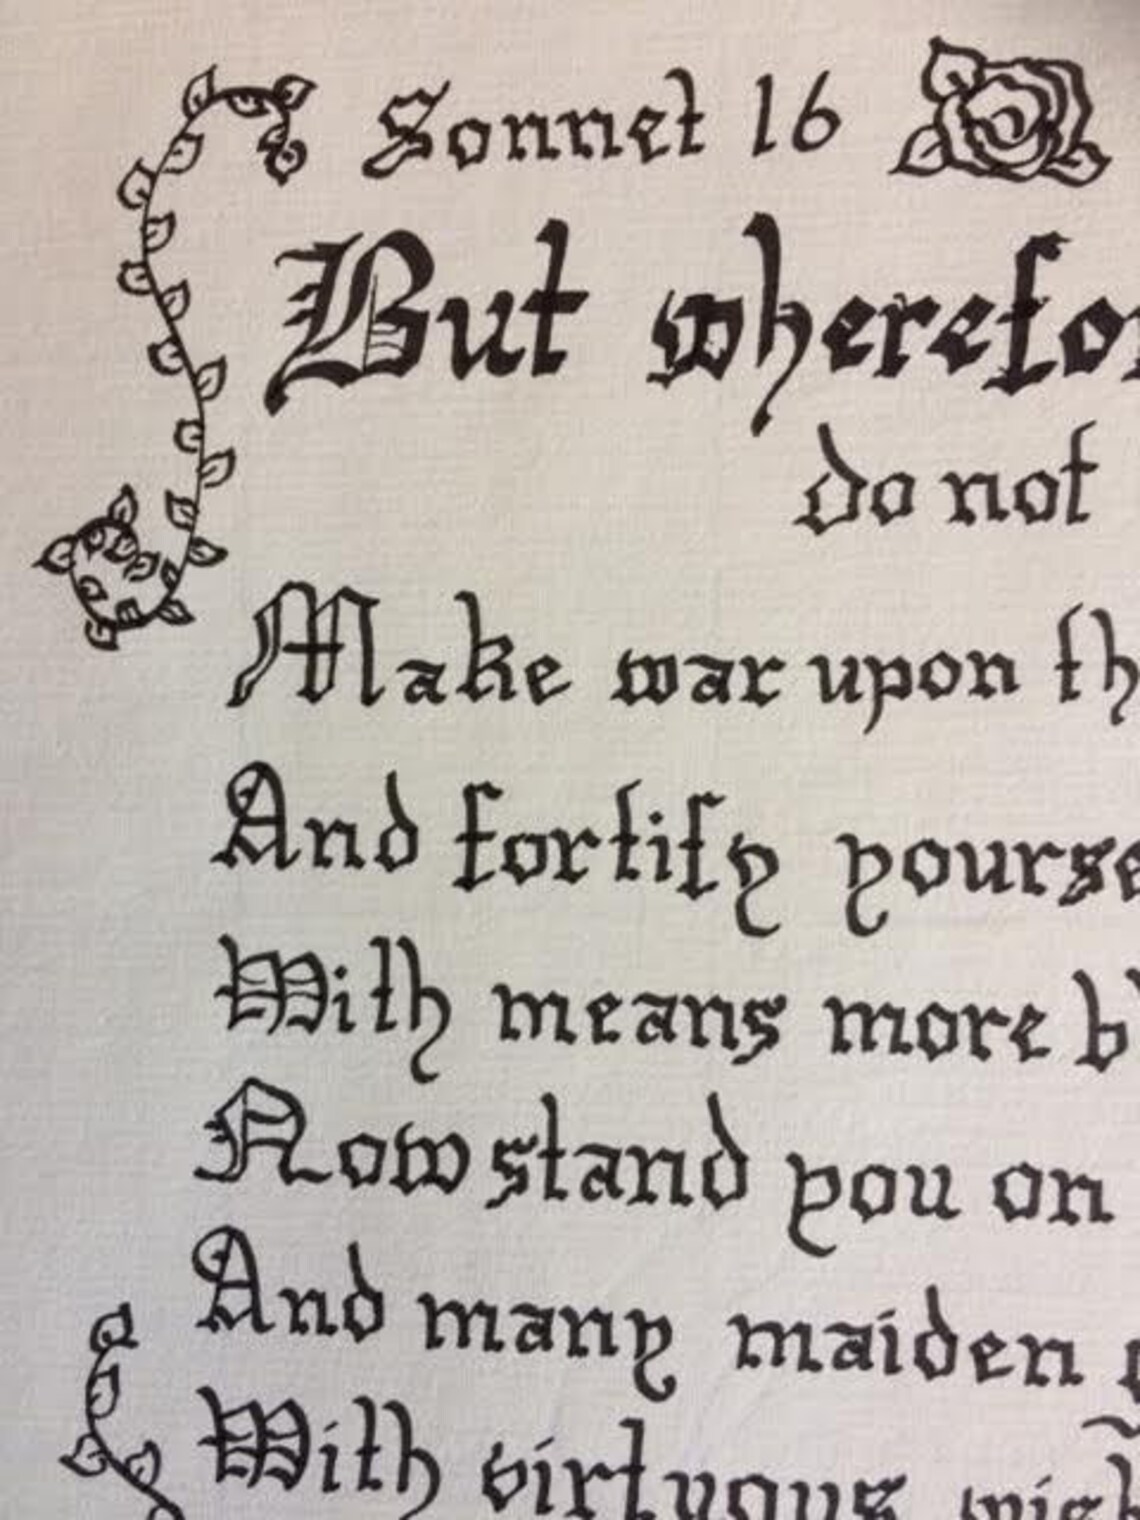 Sonnet 16
But wherefor
do not
Make war upon th
And fortify yourse
With means more b
Now stand you on
And many maiden
With virtuous wish